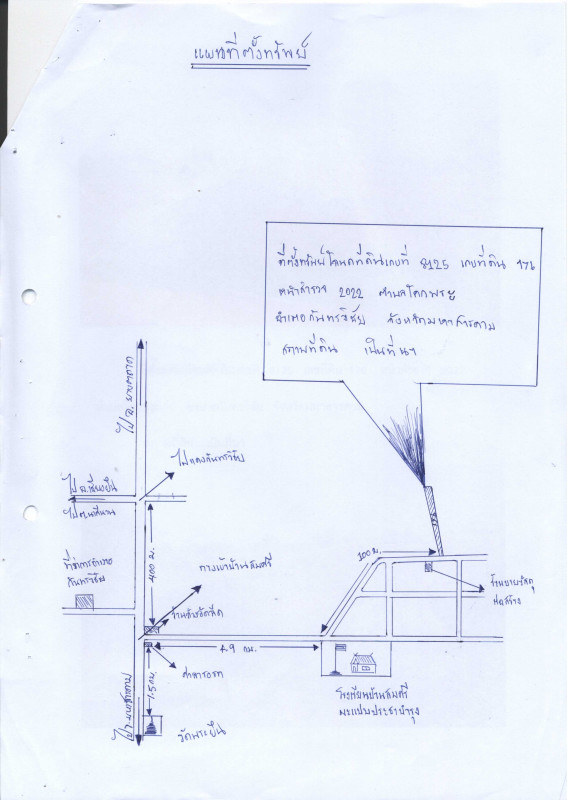 แผนที่ตั้งทรัพย์
ที่ตั้งทรัพย์ โฉนดที่ดินเลขที่ 8125 เลขที่ดิน 176
หน้าสำรวจ 2022 ตำบลโคกพระ
อำเภอกันทรวิชัย จังหวัดมหาสารคาม
สภาพที่ดิน เป็นที่นา
ไป
ไฟแดงกันทรวิชัย
ไป อ.เชียงยืน
ที่ว่าการอำเภอ
กันทรวิชัย
400 ม.
ทางเข้าบ้านสมศรี
100 ม.
ร้านขายวัสดุ
ก่อสร้าง
กม.
ศาลารอรถ
1.5 กม.
ไป จ.มหาสารคาม
วัดพระยืน
โรงเรียนบ้านสมศรี
ประชาบำรุง